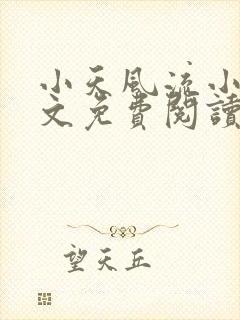 小天風流小
文免費閱讀
望天丘